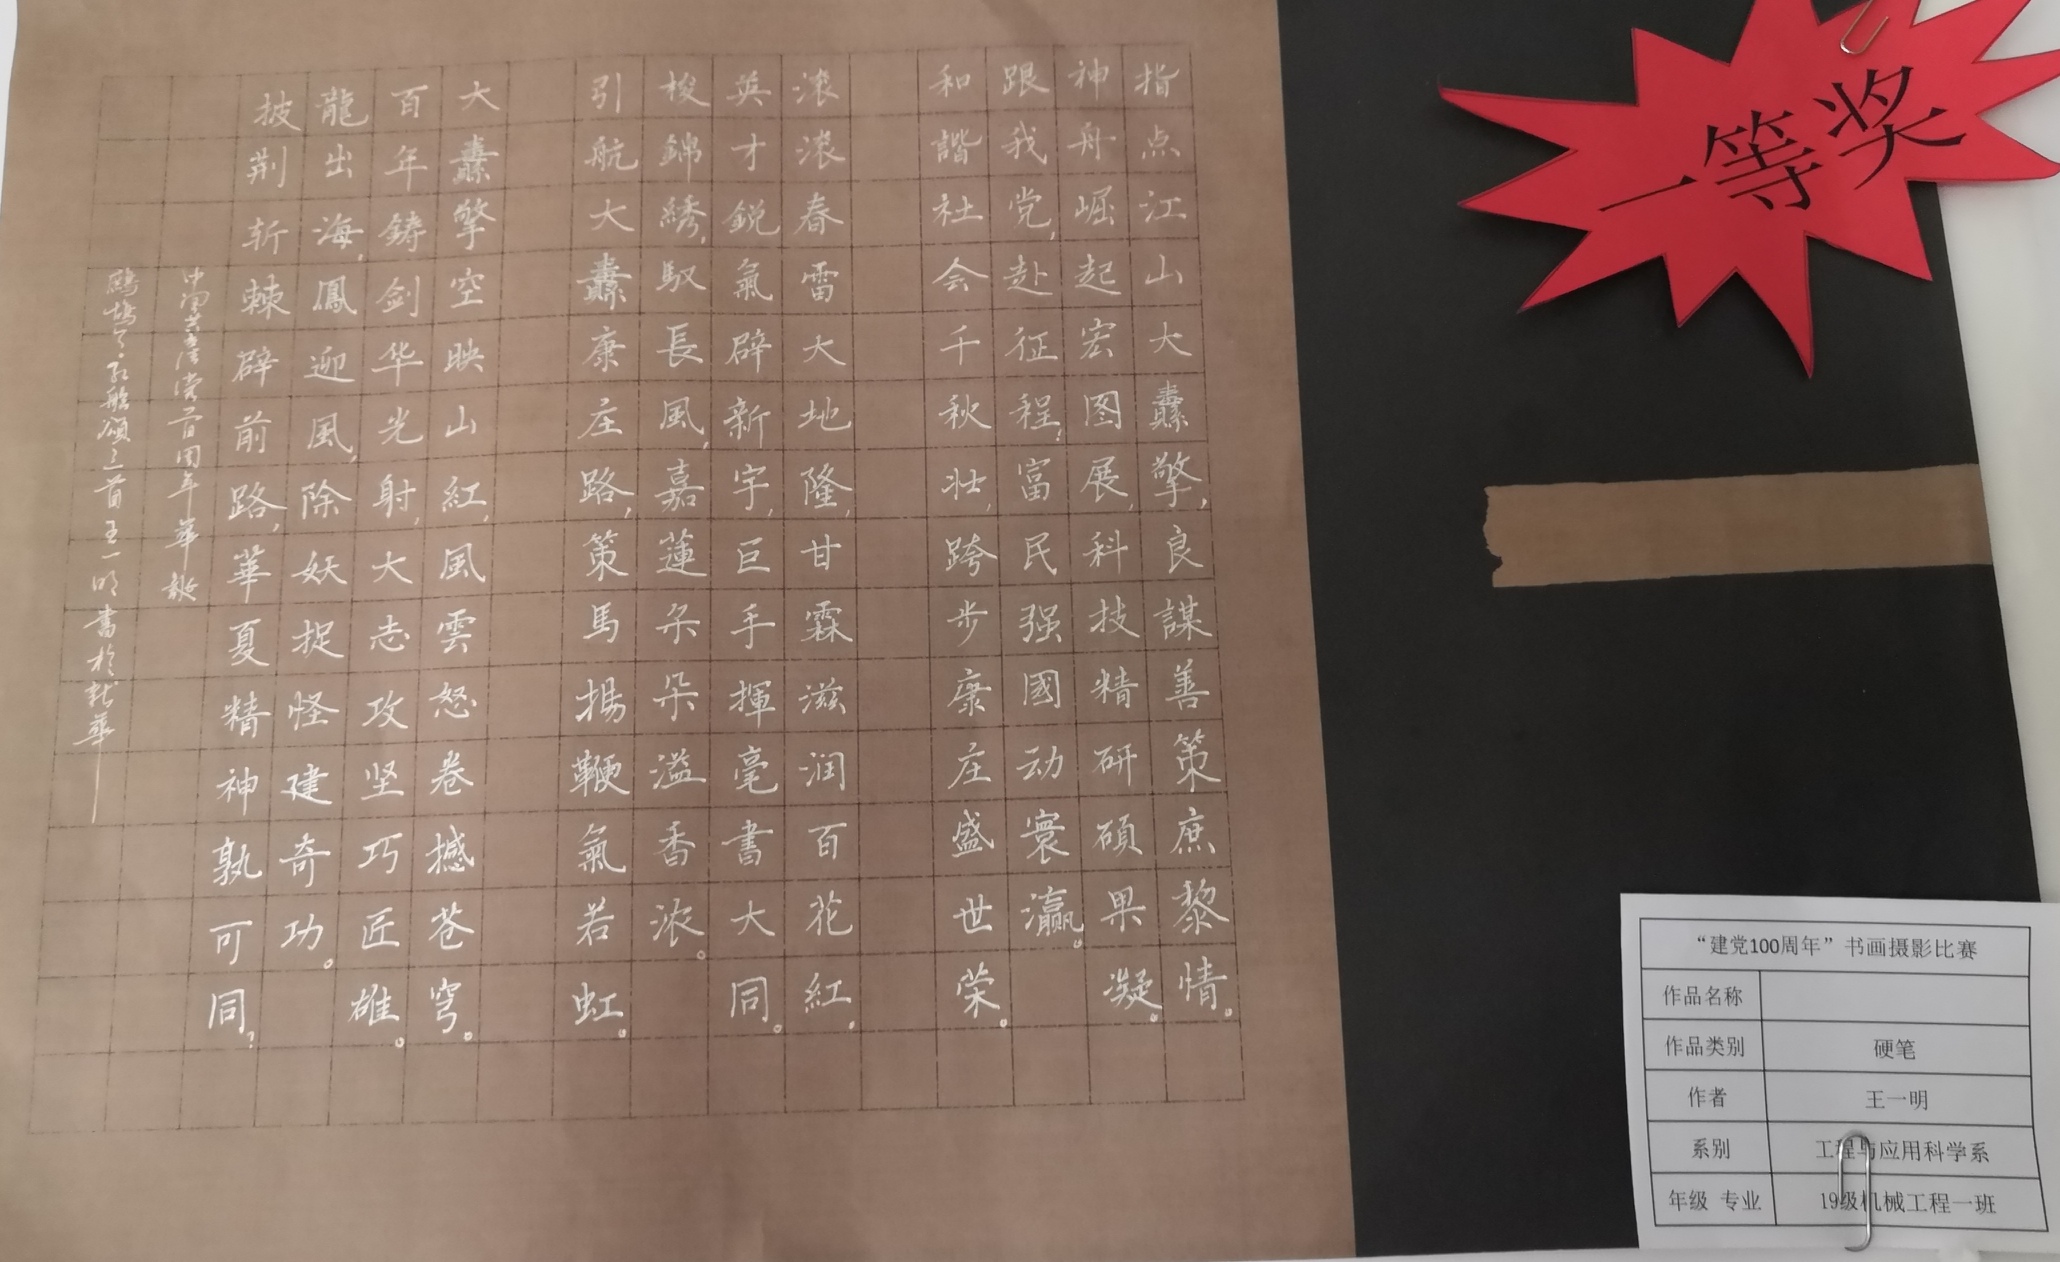 指点江山大纛擎,良謀善策庶黎情。
神舟崛起宏图展,科技精研碩果凝。
跟我党,赴征程,富民强國动寰瀛。
和諧社会千秋壮,跨步康庄盛世荣。
滚滚春雷大地隆,甘霖滋润百花紅。
英才鋭氣辟新宇,巨手揮毫書大同。
梭錦綉,馭長風,嘉蓮朵朵溢香浓。
引航大纛康庄路,策馬揚鞭氣若虹。
大纛擎空映山紅,風雲怒卷撼苍穹。
百年鋳剑华光射,大志攻坚巧匠雄。
龍出海,鳳迎風,除妖捉怪建奇功。
披荆斩棘辟前路,華夏精神孰可同?
百周年華誕
鷓鴣天·红歌頌三首王一明書於龍華
一等奖
“建党100周年”书画摄影比赛
作品名称
作品类别 硬笔
作者 王一明
系别 工程与应用科学系
年级 专业 19级机械工程一班